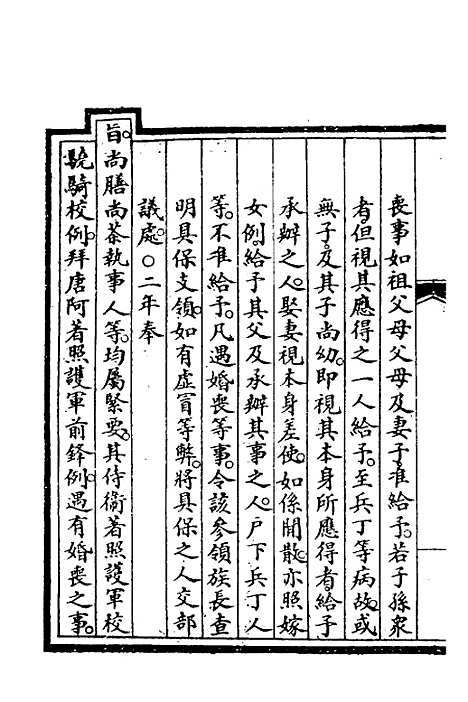 喪事如祖父母父母及妻子。准給予。若子孫衆
者。但視其應得之一人給予。至兵丁等病故。或
無子。及其子尚幼。即視其本身所應得者給予
承辦之人。娶妻視本身差使。如係閒散。亦照嫁
女例。給予其父及承辦其事之人。戶下兵丁人
等。不准給予。凡遇婚喪等事。令該參領族長查
明具保支領。如有虛冒等弊。將具保之人交部
議處。○二年奉
旨。尚膳尚茶執事人等。均屬緊要。其侍衞著照護軍校
驍騎校例。拜唐阿著照護軍前鋒例。遇有婚喪之事。